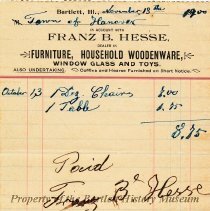 Bartlett, Ill., November 13th 1900
M Town of Hanover
IN ACCOUNT WITH
FRANZ B. HESSE,
DEALER IN
FURNITURE, HOUSEHOLD WOODENWARE,
WINDOW GLASS AND TOYS.
ALSO UNDERTAKING. Coffins and Hearse Furnished on Short Notice.
October 13 1 Doz Chairs 7.00
1 Table 1.75
8.75
Paid
Franz B. Hesse
Property of the Bartlett History Museum